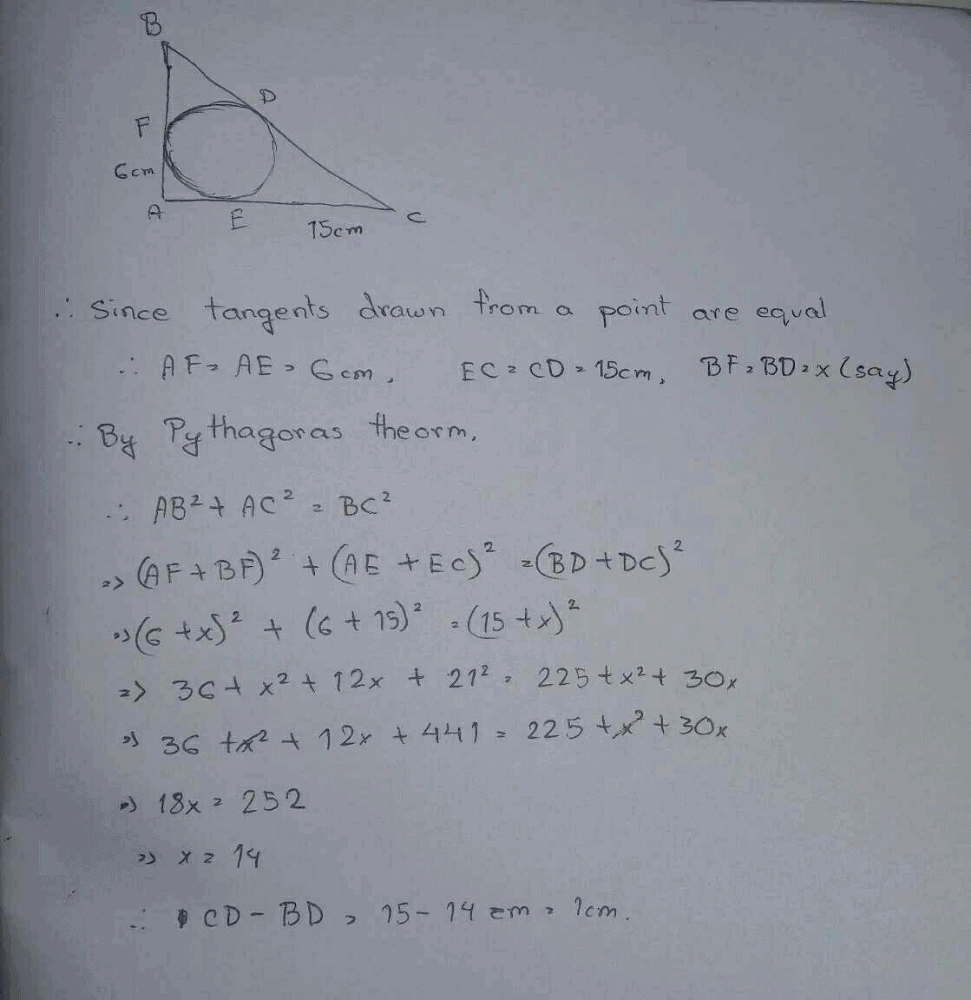 B
D
F
6cm
A
E
15cm
C
∴ Since tangents drawn from a point are equal
∴ AF = AE = 6cm, EC = CD = 15cm, BF = BD = x (say)
∴ By Pythagoras theorm,
∴ AB² + AC² = BC²
=> (AF + BF)² + (AE + EC)² = (BD + DC)²
=> (6 + x)² + (6 + 15)² = (15 + x)²
=> 36 + x² + 12x + 21² = 225 + x² + 30x
=> 36 + x² + 12x + 441 = 225 + x² + 30x
=> 18x = 252
=> x = 14
∴ CD - BD = 15 - 14 cm = 1cm.